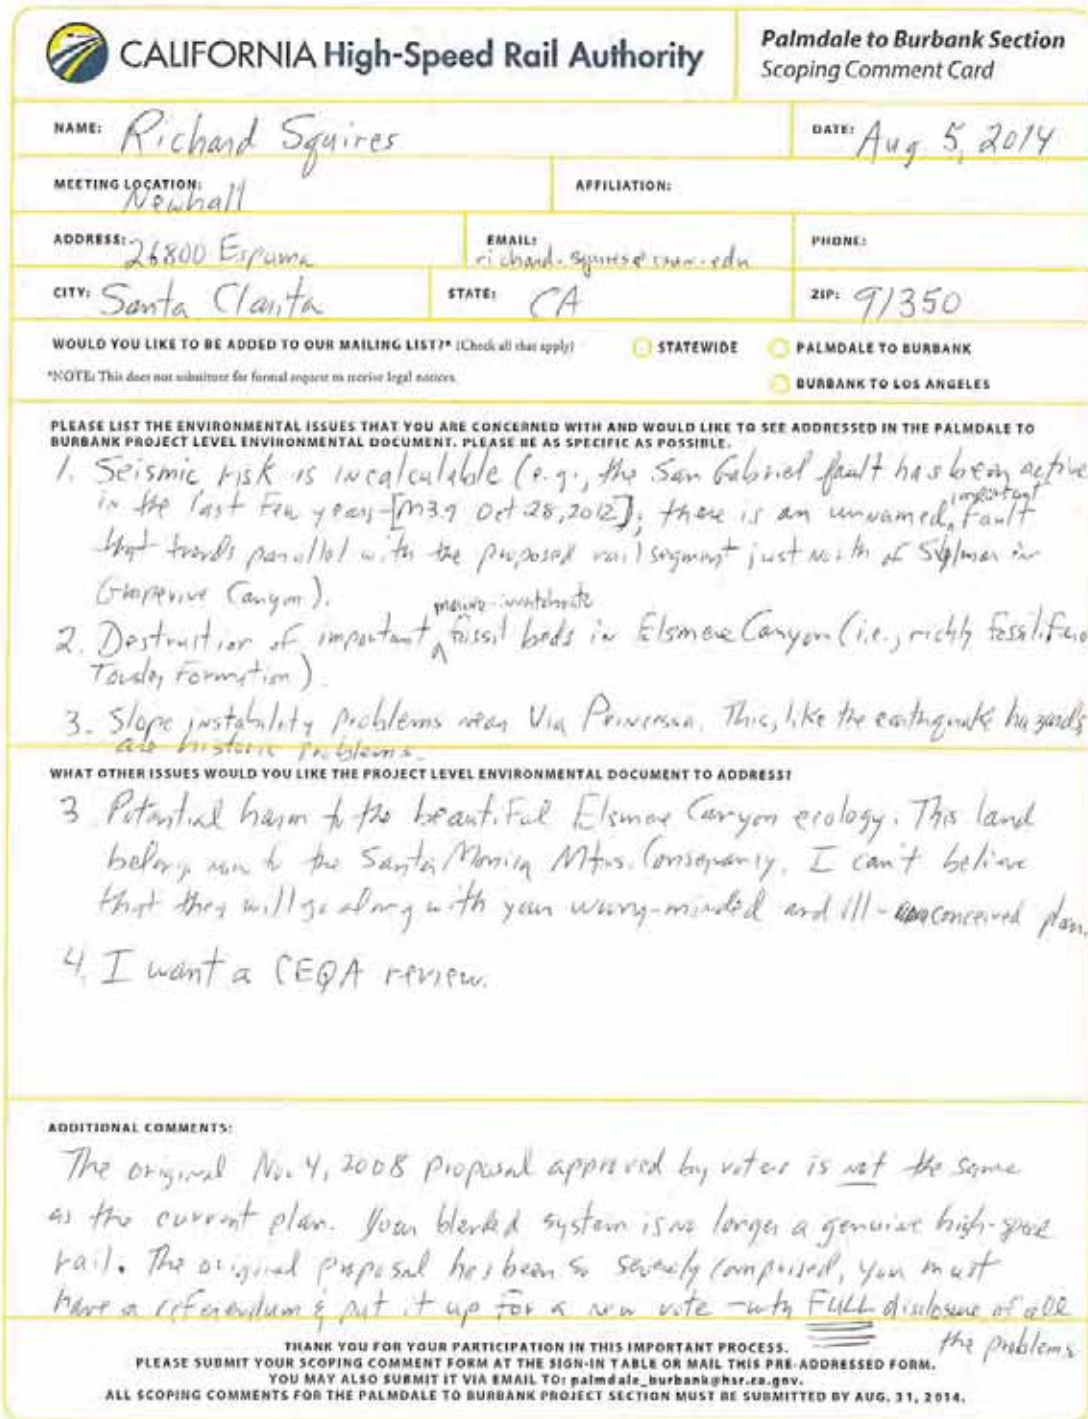 CALIFORNIA High-Speed Rail Authority
Palmdale to Burbank Section
Scoping Comment Card
NAME: Richard Squires
DATE: Aug 5, 2014
MEETING LOCATION: Newhall
AFFILIATION:
ADDRESS: 26800 Espuma
EMAIL: richard.squires@csun.edu
PHONE:
CITY: Santa Clarita
STATE: CA
ZIP: 91350
WOULD YOU LIKE TO BE ADDED TO OUR MAILING LIST?* (Check all that apply)
STATEWIDE
PALMDALE TO BURBANK
*NOTE: This does not substitute for formal request to receive legal notices.
BURBANK TO LOS ANGELES
PLEASE LIST THE ENVIRONMENTAL ISSUES THAT YOU ARE CONCERNED WITH AND WOULD LIKE TO SEE ADDRESSED IN THE PALMDALE TO
BURBANK PROJECT LEVEL ENVIRONMENTAL DOCUMENT. PLEASE BE AS SPECIFIC AS POSSIBLE.
1. Seismic risk is incalculable (e.g., the San Gabriel fault has been active
in the last few years-[M3.9 Oct 28, 2012]; there is an unnamed, important fault
that trends parallel with the proposed rail segment just north of Sylmar in
Grapevine Canyon).
2. Destruction of important marine-invertebrate fossil beds in Elsmere Canyon (i.e., richly fossilifero
Towsley Formation).
3. Slope instability problems near Via Princessa. This, like the earthquake hazards
are historic problems.
WHAT OTHER ISSUES WOULD YOU LIKE THE PROJECT LEVEL ENVIRONMENTAL DOCUMENT TO ADDRESS?
3 Potential harm to the beautiful Elsmere Canyon ecology. This land
belongs now to the Santa Monica Mtns. Conservancy. I can't believe
that they will go along with your wrong-minded and ill-conceived plan.
4. I want a CEQA review.
ADDITIONAL COMMENTS:
The original No. 4, 2008 proposal approved by voters is not the same
as the current plan. Your blended system is no longer a genuine high-speed
rail. The original proposal has been so severely comprised, you must
have a referendum & put it up for a new vote - with FULL disclosure of all
the problems
THANK YOU FOR YOUR PARTICIPATION IN THIS IMPORTANT PROCESS.
PLEASE SUBMIT YOUR SCOPING COMMENT FORM AT THE SIGN-IN TABLE OR MAIL THIS PRE-ADDRESSED FORM.
YOU MAY ALSO SUBMIT IT VIA EMAIL TO: palmdale_burbank@hsr.ca.gov.
ALL SCOPING COMMENTS FOR THE PALMDALE TO BURBANK PROJECT SECTION MUST BE SUBMITTED BY AUG. 31, 2014.